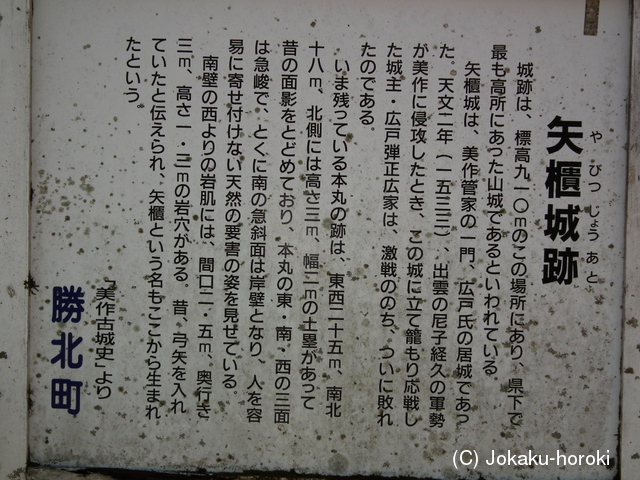 矢櫃城跡
や びつ じょう あと
城跡は、標高九一〇mのこの場所にあり、県下で
最も高所にあった山城であるといわれている。
矢櫃城は、美作菅家の一門、広戸氏の居城であっ
た。天文二年（一五三三）、出雲の尼子経久の軍勢
が美作に侵攻したとき、この城に立て籠もり応戦し
た城主・広戸弾正広家は、激戦ののち、ついに敗れ
たのである。
いま残っている本丸の跡は、東西二十五m、南北
十八m、北側には高さ三m、幅二mの土塁があって
昔の面影をとどめており、本丸の東・南・西の三面
は急峻で、とくに南の急斜面は岸壁となり、人を容
易に寄せ付けない天然の要害の姿を見せている。
南壁の西よりの岩肌には、間口二・五m、奥行き
三m、高さ一・二mの岩穴がある。昔、弓矢を入れ
ていたと伝えられ、矢櫃という名もここから生まれ
たという。
「美作古城史」より
勝北町
(C) Jokaku-horoki